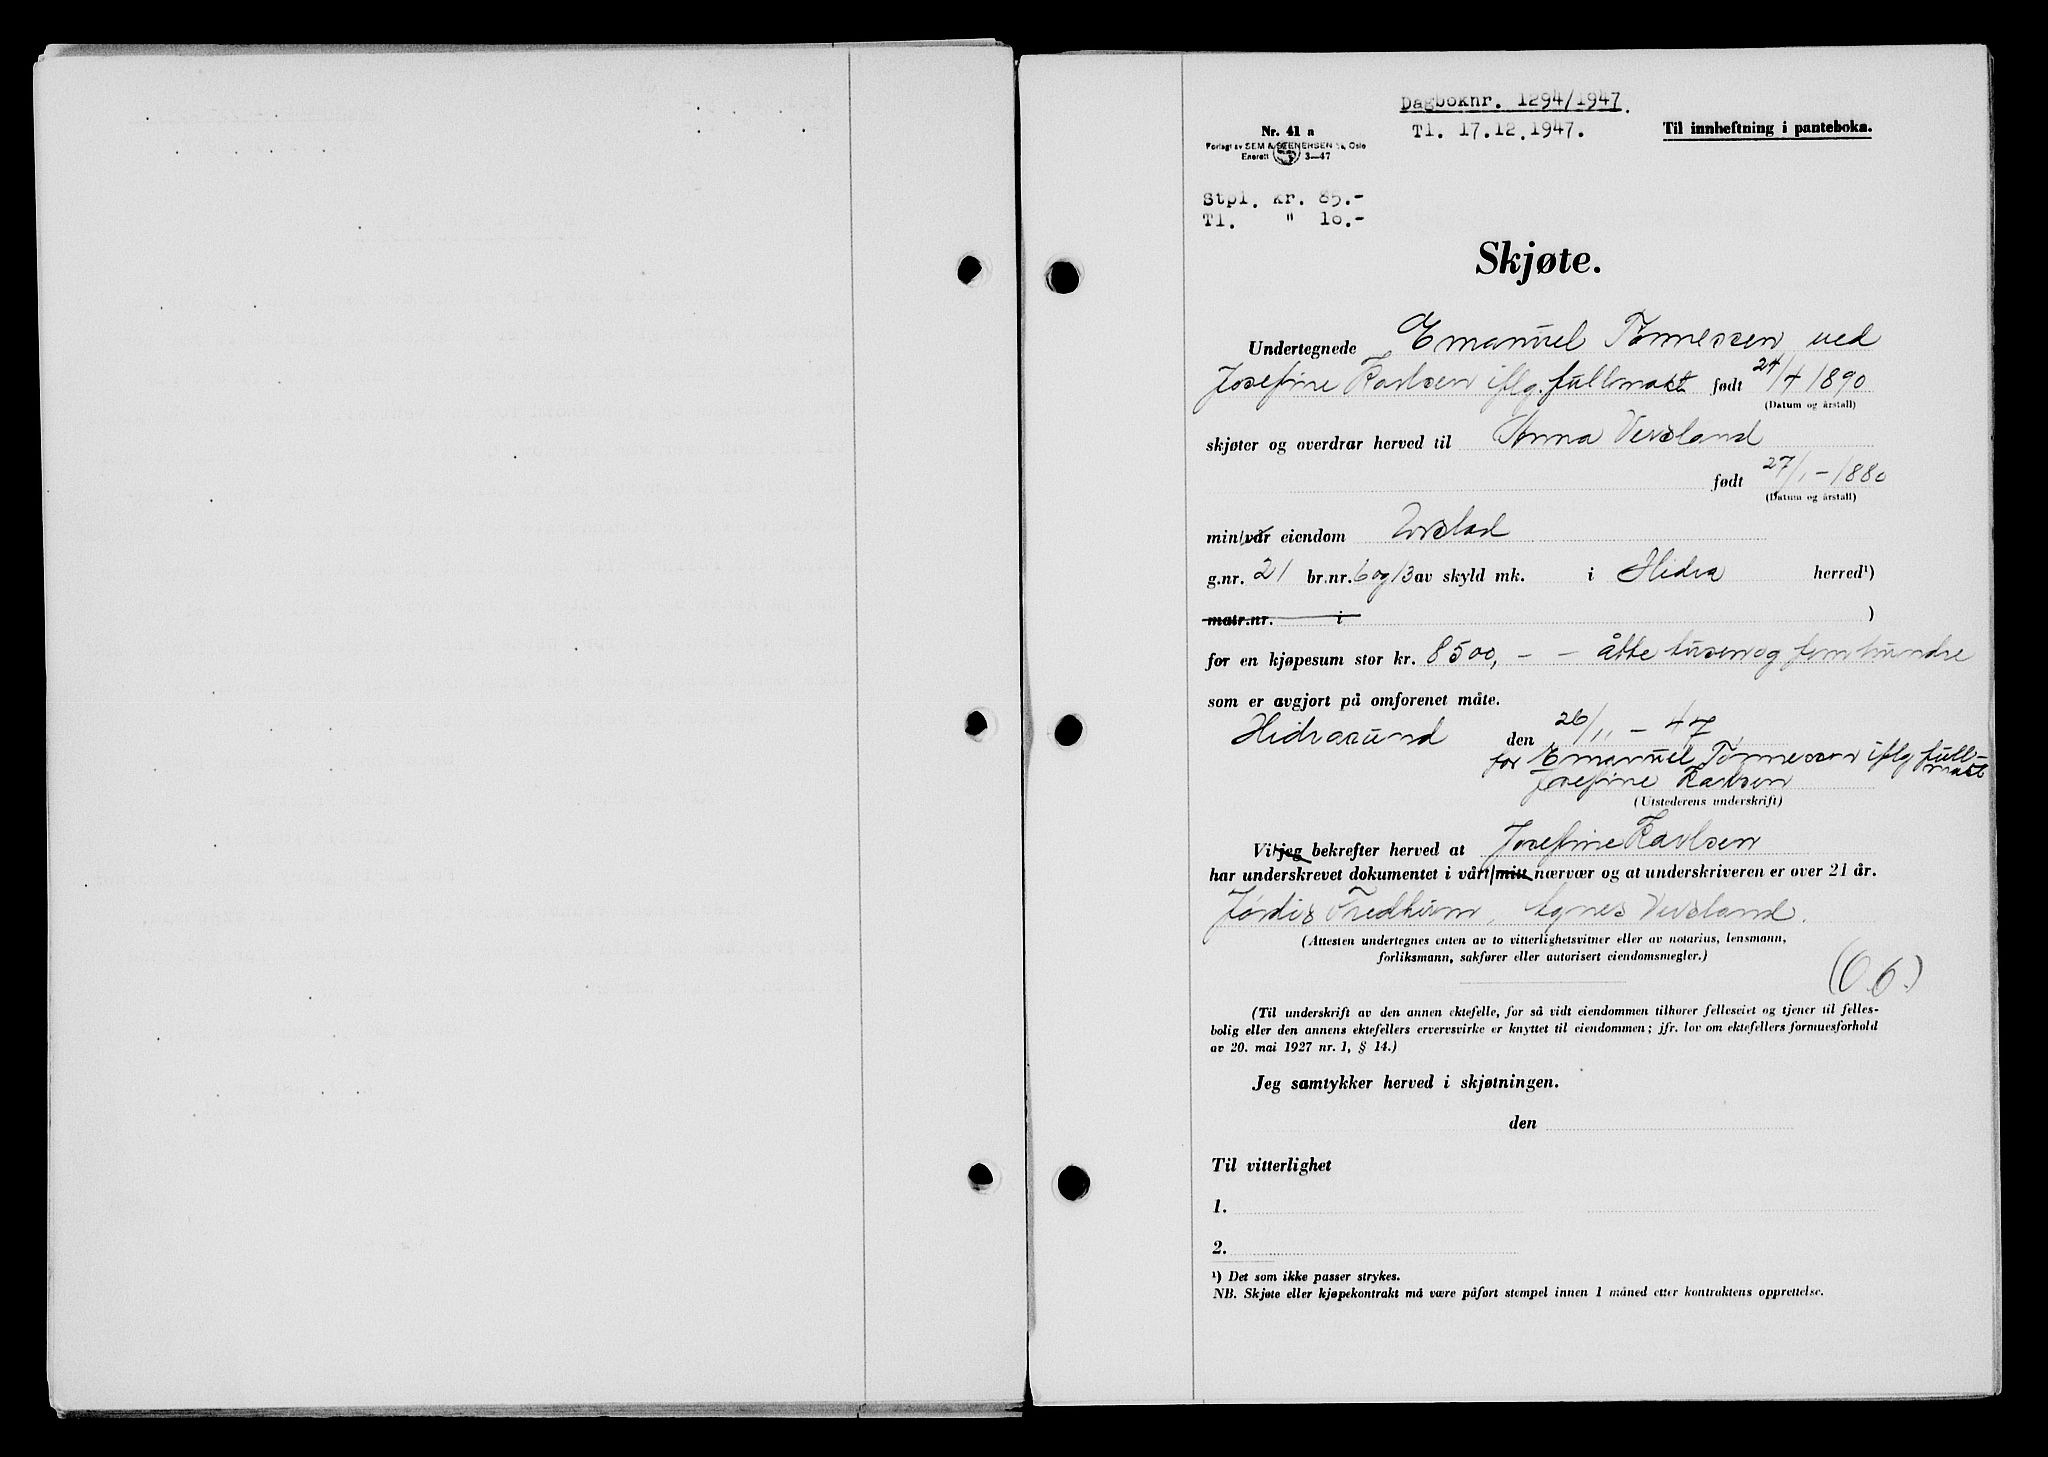 Dagboknr. 1294/1947.
Tl. 17.12.1947.
Til innheftning i panteboka.
Nr. 41 a
Forlagt av SEM & STENERSEN A/s, Oslo
Enerett 3—47
Stpl. kr. 85.-
Tl. " 10.-
Skjøte.
Undertegnede Emanuel Tønnessen ved
Josefine Karlsen iflg. fullmakt født 24/4 1890
(Datum og årstall)
skjøter og overdrar herved til Anna Versland
født 27/1 - 1880
(Datum og årstall)
min/vår eiendom
g.nr. 21 br.nr. 6 og 13 av skyld mk. i Hidra herred¹)
matr.nr. i )
for en kjøpesum stor kr. 8500, - - åtte tusen og fem hundre
som er avgjort på omforenet måte.
Hidrasund den 26/11 - 47
for Emanuel Tønnessen iflg full-
makt
Josefine Karlsen
(Utstederens underskrift)
Vi/jeg bekrefter herved at Josefine Karlsen
har underskrevet dokumentet i vårt/mitt nærvær og at underskriveren er over 21 år.
Jórdis Fredheim, Agnes Versland.
(Attesten undertegnes enten av to vitterlighetsvitner eller av notarius, lensmann,
forliksmann, sakfører eller autorisert eiendomsmegler.)
(O.6.)
(Til underskrift av den annen ektefelle, for så vidt eiendommen tilhører felleseiet og tjener til felles-
bolig eller den annens ektefellers ervervsvirke er knyttet til eiendommen; jfr. lov om ektefellers formuesforhold
av 20. mai 1927 nr. 1, § 14.)
Jeg samtykker herved i skjøtningen.
den
Til vitterlighet
1.
2.
¹) Det som ikke passer strykes.
NB. Skjøte eller kjøpekontrakt må være påført stempel innen 1 måned etter kontraktens opprettelse.